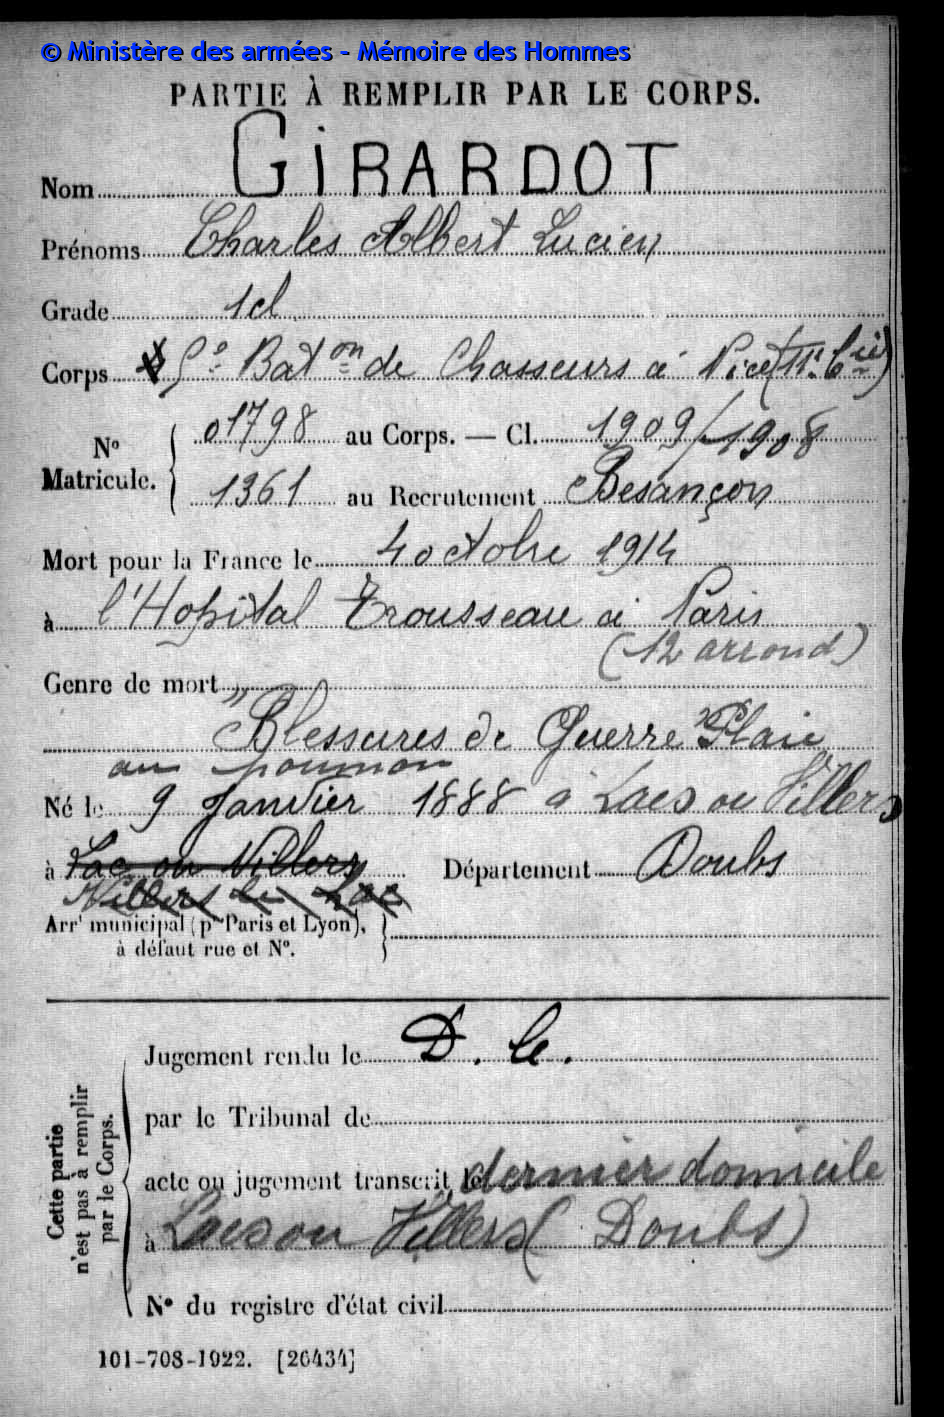 © Ministère des armées - Mémoire des Hommes
PARTIE À REMPLIR PAR LE CORPS.
Nom GIRARDOT
Prénoms Charles Albert Lucien
Grade 1cl
Corps Bat on de Chasseurs à Nice (11e Cie)
N° Matricule. 01798 au Corps. — Cl. 1909/1908
1361 au Recrutement Besançon
Mort pour la France le 4 octobre 1914
à l'Hopital Trousseau à Paris
(12 arrond)
Genre de mort
"Blessures de Guerre" Plaie
au poumon
Né le 9 Janvier 1888 à Lacs ou Villers
à Lac ou Villers Département Doubs
Villers le Lac
Arrt municipal (pr Paris et Lyon),
à défaut rue et N°.
Cette partie
n'est pas à remplir
par le Corps.
Jugement rendu le D. C.
par le Tribunal de
acte ou jugement transcrit le dernier domicile
à Lacs ou Villers (Doubs)
N° du registre d'état civil
101-708-1922. [26434]